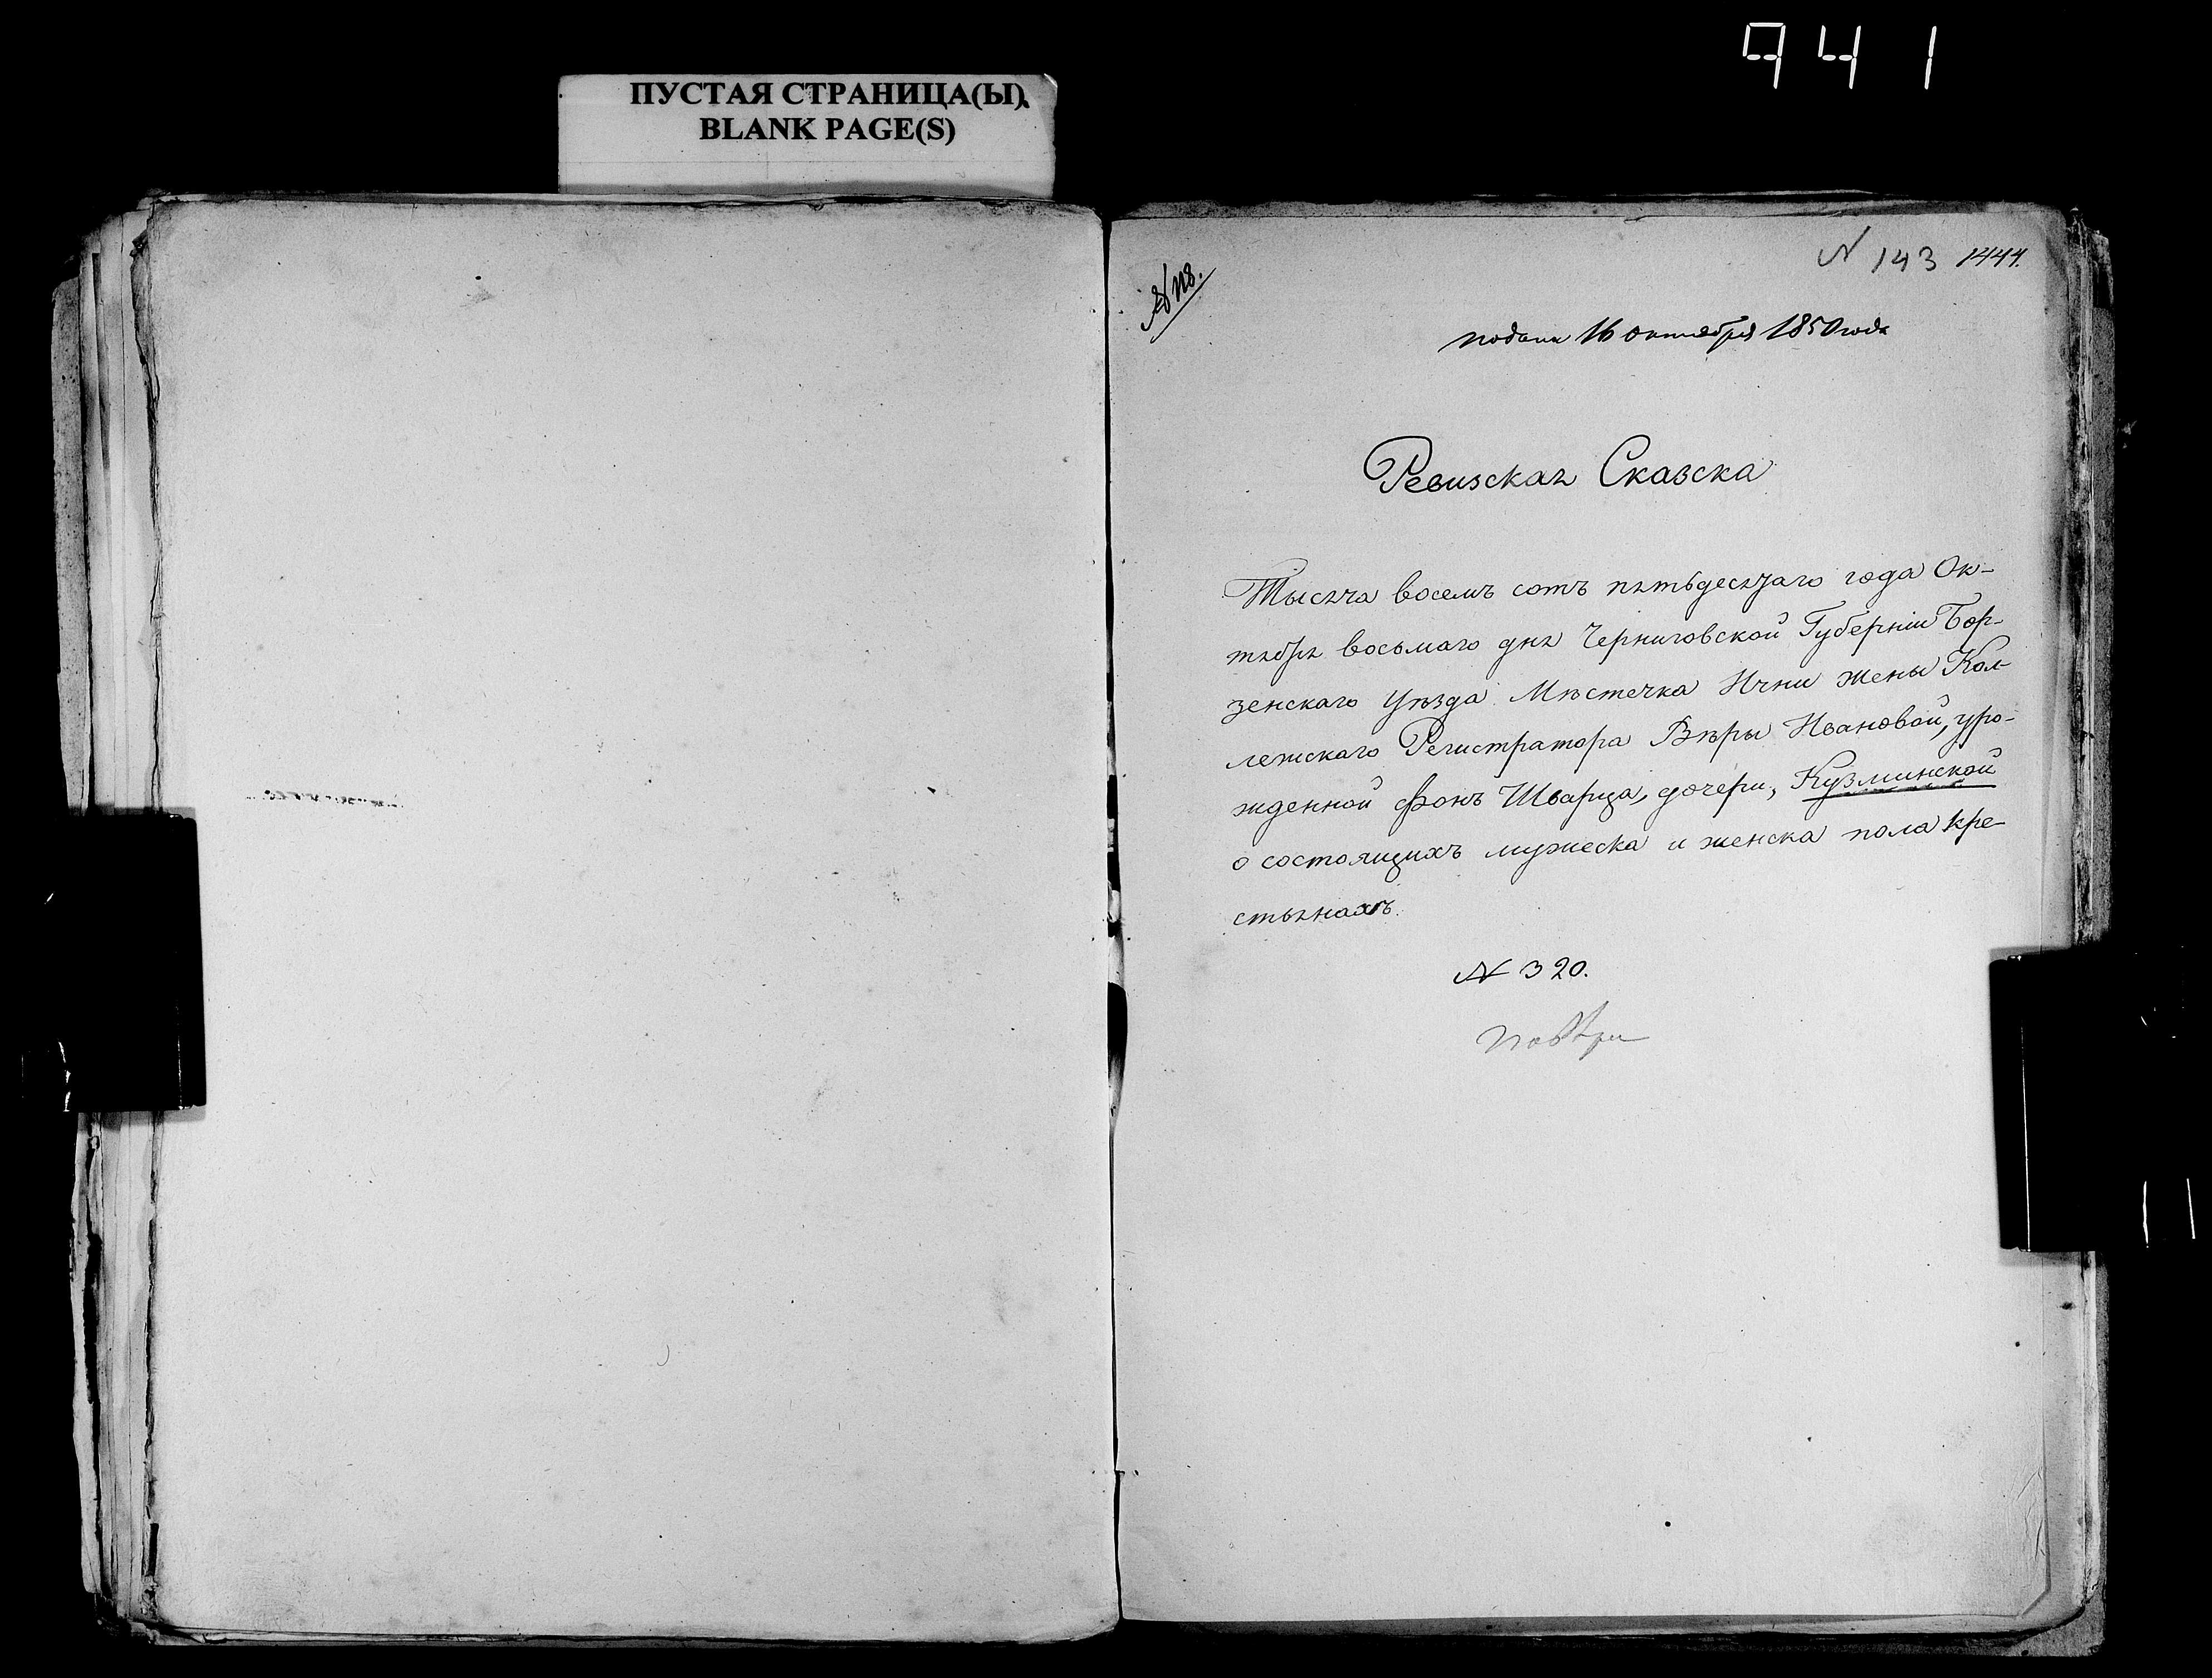 941
ПУСТАЯ СТРАНИЦА(Ы)
BLANK PAGE(S)
N 143 1444.
N 118.
подана 16 октября 1850 года
Ревизская Сказска
Тысяча восемъ сотъ пятьдесятаго года Ок-
тября восьмаго дня Черниговской Губерніи Бор-
зенскаго Уѣзда Мѣстечка Ични жены Кол-
лежскаго Регистратора Вѣры Ивановой, уро-
жденной фонъ Шварца, дочери, Кузминской
о состоящихъ мужеска и женска пола кре-
стьянахъ.
N 320.